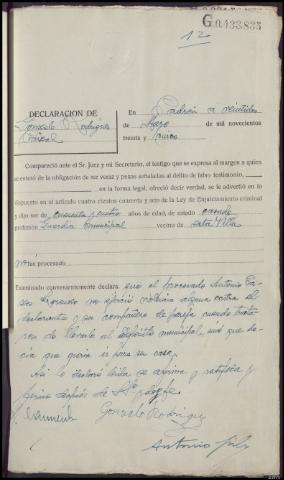 G.0.433.835
12
DECLARACION DE
Gonzalo Rodriguez
En Padrón a veintidos
de Mayo de mil novecientos
treinta y
Compareció ante el Sr. Juez y mi Secretario, el testigo que se expresa al margen a quien
se enteró de la obligación de ser veraz y penas señaladas al delito de falso testimonio,
en la forma legal, ofreció decir verdad, se le advertió en lo
dispuesto en el artículo cuatro cientos cuarenta y seis de la Ley de Enjuiciamiento criminal
y dijo ser de cincuenta y cuatro años de edad, de estado casado
profesión Guardia Municipal vecino de esta Villa
No fue procesado
Examinado convenientemente declara que el procesado Antonio
no ejerció violencia alguna contra el
declarante y su compañero de pareja cuando trata-
ron de llevarlo al depósito municipal, sinó que de-
cia que queria ir para su casa.
Asi lo declaró leida se afirma y ratifica y
firma después de S.Sª doy fe.
Gonzalo Rodriguez
Antonio